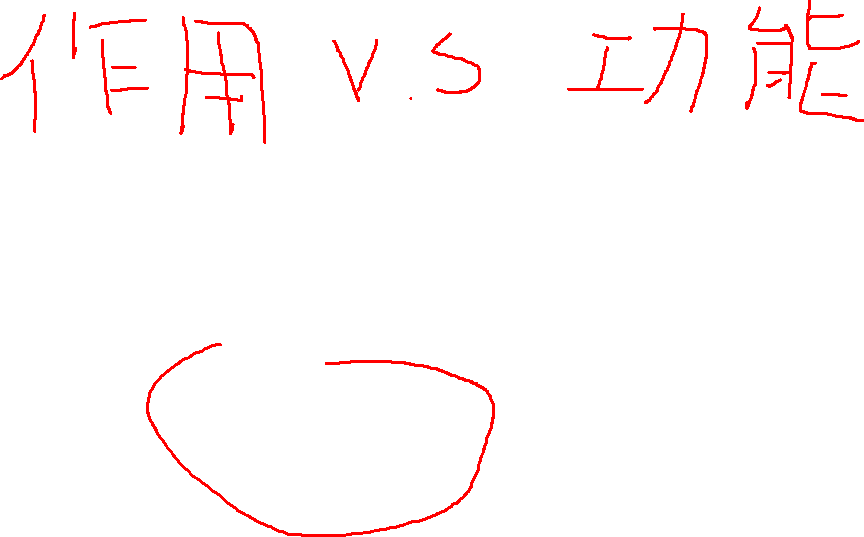 作用 v.s 功能